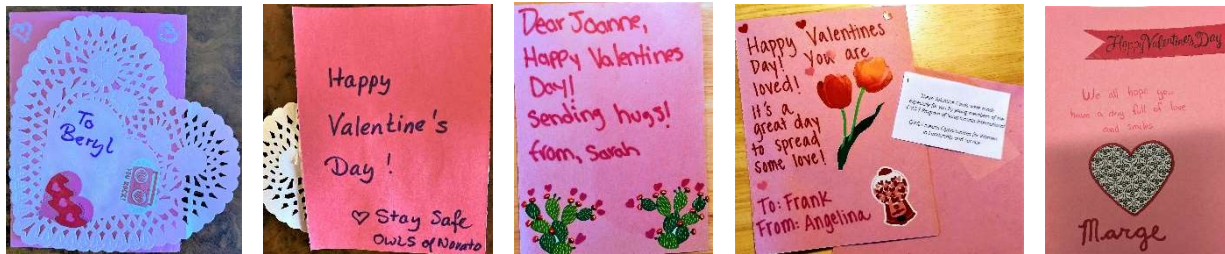 To
Beryl
Happy
Valentine's
Day!
♡ Stay Safe
OWLS of Novato
Dear Joanne,
Happy Valentines
Day!
Sending hugs!
from, Sarah
Happy Valentines
Day! You are
loved!
It's a
great day
to spread
some love!
To: Frank
From: Angelina
Happy Valentine's Day
We all hope you
have a day full of love
and smiles
Marge